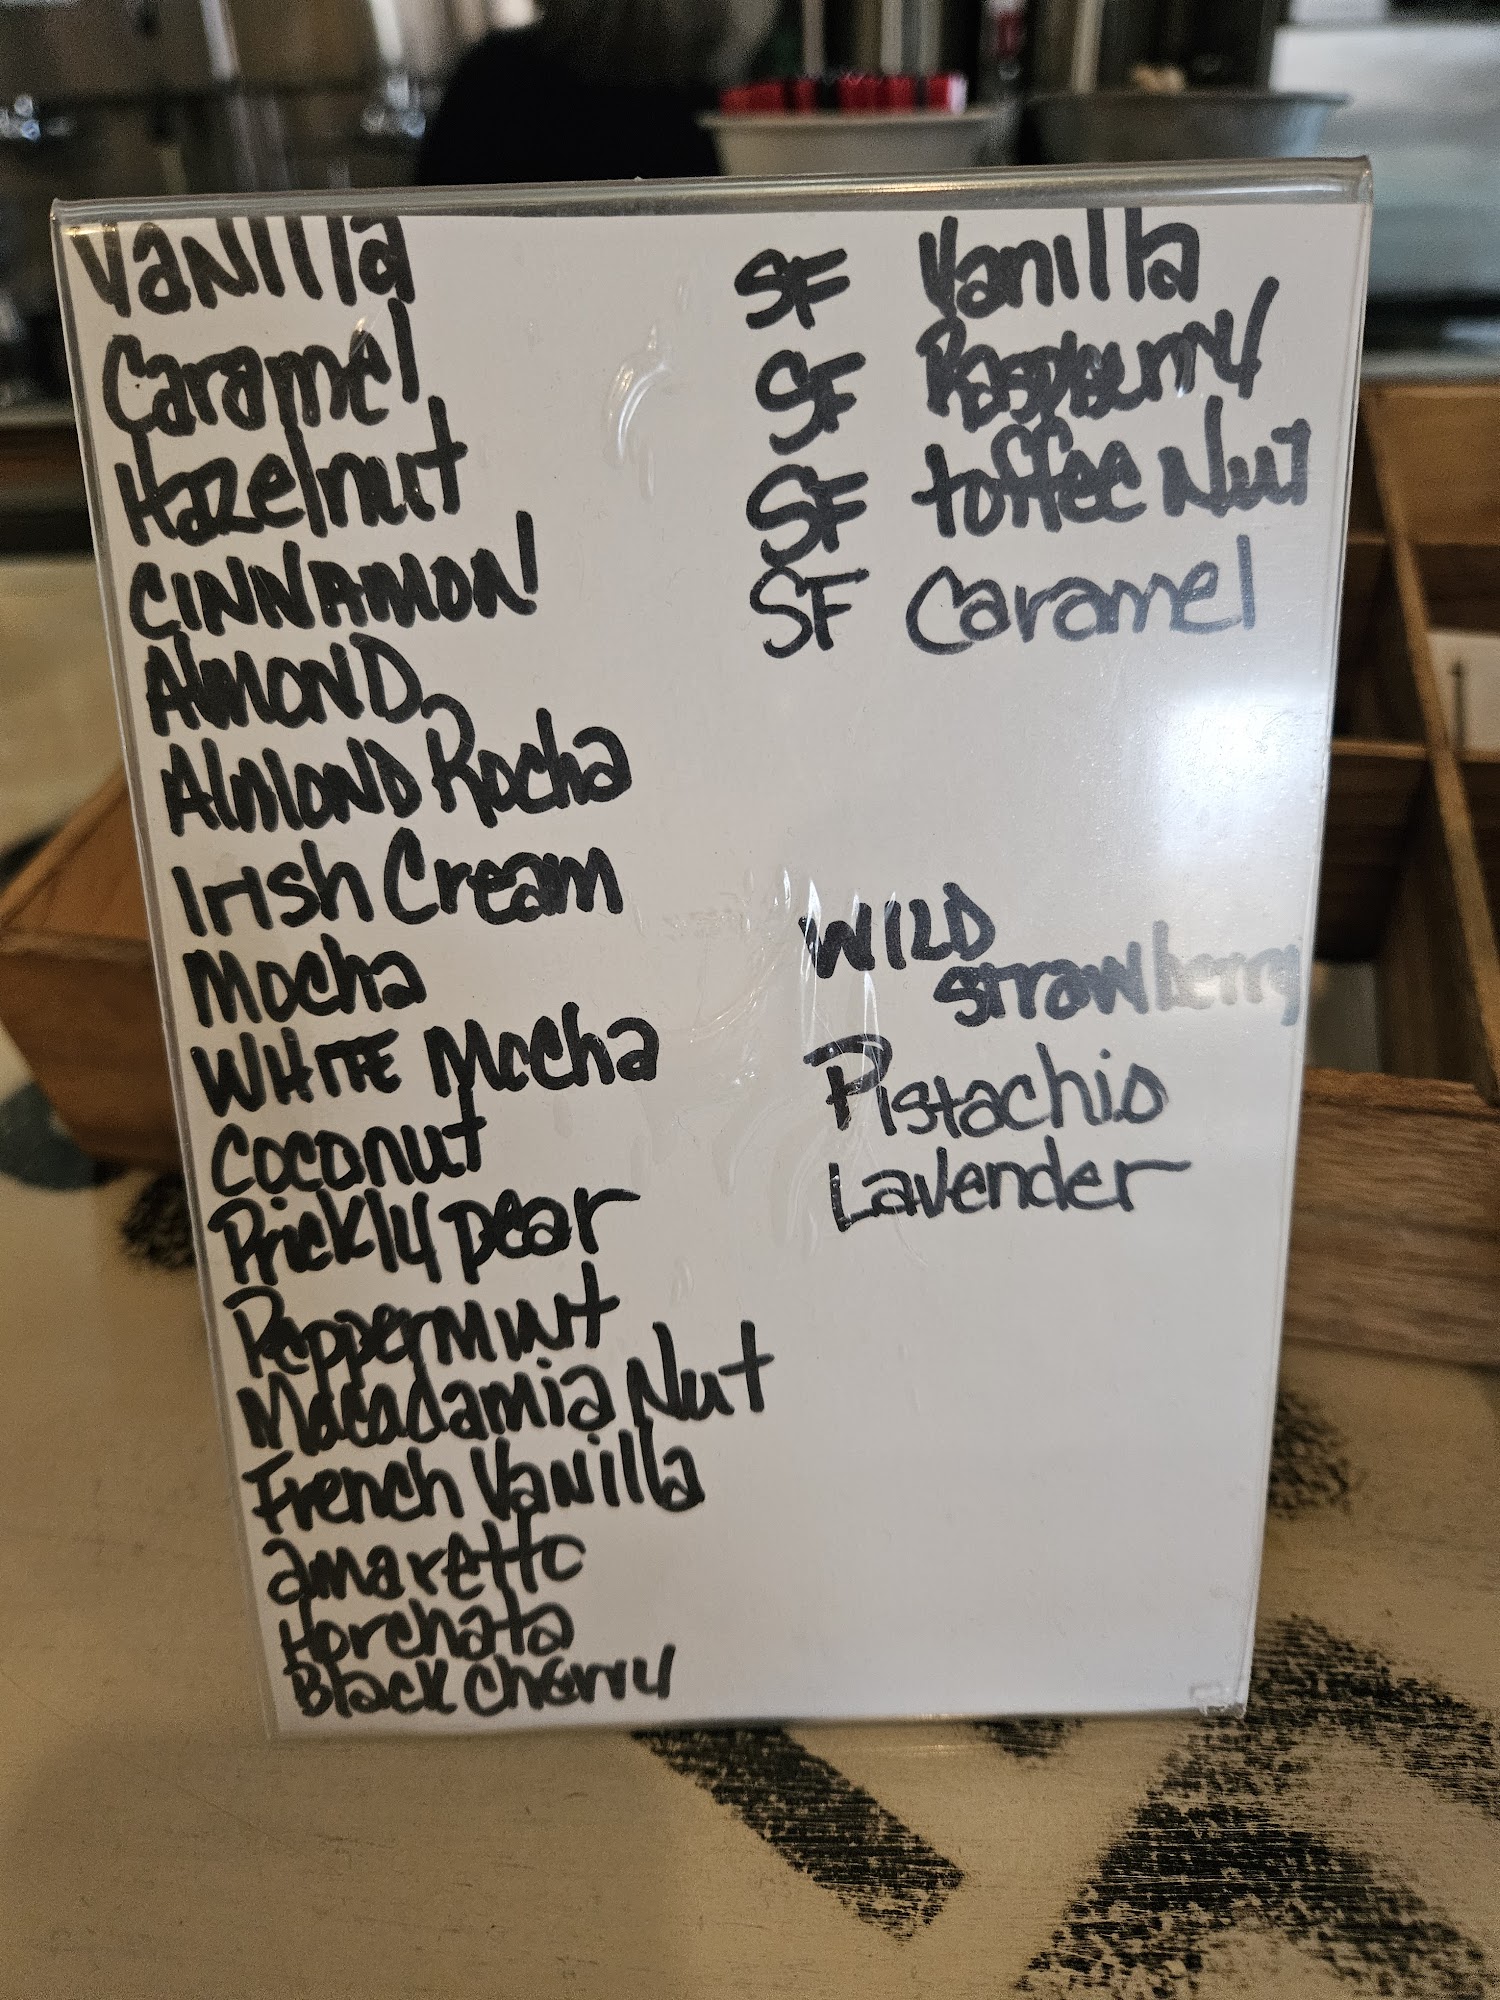 Vanilla
Caramel
Hazelnut
CINNAMON
AlMOND
AlMOND Rocha
Irish Cream
Mocha
WHITE Mocha
Coconut
Prickly pear
Peppermint
Macadamia Nut
French Vanilla
amaretto
Horchata
Black cherry
SF Vanilla
SF Raspberry
SF toffee Nut
SF Caramel
WILD
strawberry
Pistachio
Lavender